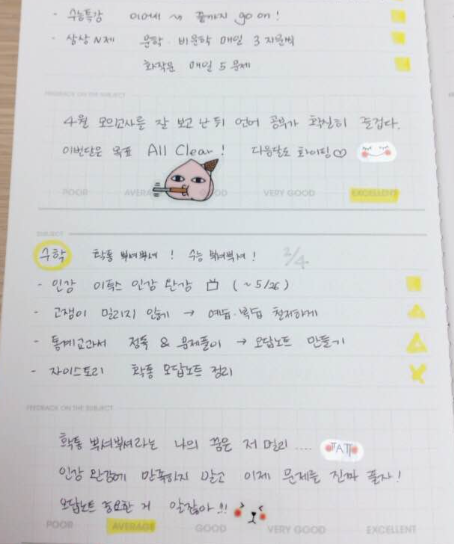 - 수능특강 이어서 ~> 끝까지 go on!
- 상상 N제 문학·비문학 매일 3지문씩
화작문 매일 5문제
FEEDBACK ON THE SUBJECT
4월 모의고사를 잘 보고 난 뒤 언어 공부가 확실히 즐겁다.
이번달은 목표 All Clear! 다음달도 화이팅♡
POOR AVERAGE GOOD VERY GOOD EXCELLENT
SUBJECT
수학 확통 뿌셔뿌셔! 수능 뿌셔뿌셔! 2/4
- 인강 이투스 인강 완강 (~5/26)
- 고쟁이 밀리지 않게 → 예습·복습 철저하게
- 통계교과서 정독 & 문제풀이 → 오답노트 만들기
- 자이스토리 확통 오답노트 정리
FEEDBACK ON THE SUBJECT
확통 뿌셔뿌셔라는 나의 꿈은 저 멀리 ....
인강 완강에 만족하지 말고 이제 문제를 진짜 풀자!
오답노트 중요한 거 알잖아!!
POOR AVERAGE GOOD VERY GOOD EXCELLENT